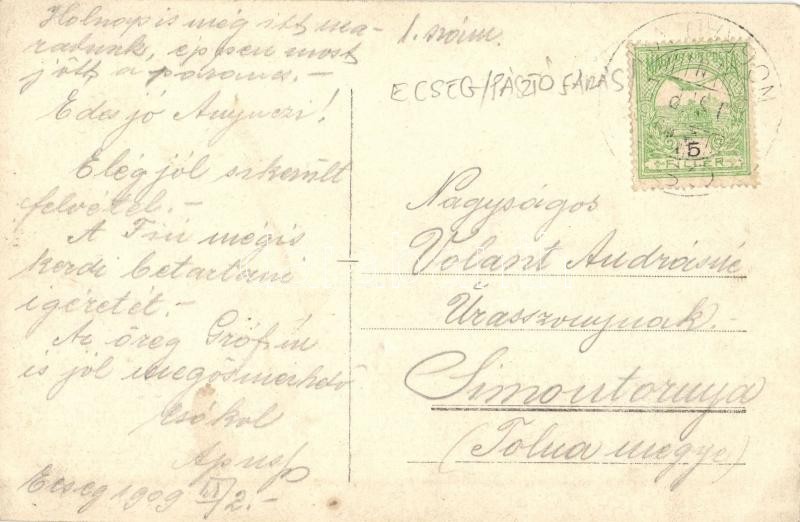 Holnap is még itt ma-
radunk, éppen most
jött a parancs.-
Édes jó Anyuczi!
Elég jól sikerült
felvétel.-
A Fiú mégis
kezdi betartani
igéretét.-
Az öreg Gróf úr
is jól megösmerhető
csókol
Apus
Ecseg 1909 III/2.-
1. szám.
ECSEG/PÁSZTÓ
MAGYAR KIR. POSTA
5
FILLÉR
Nagyságos
Volant Andrásné
Úrasszonynak.-
Simontornya
(Tolna megye)